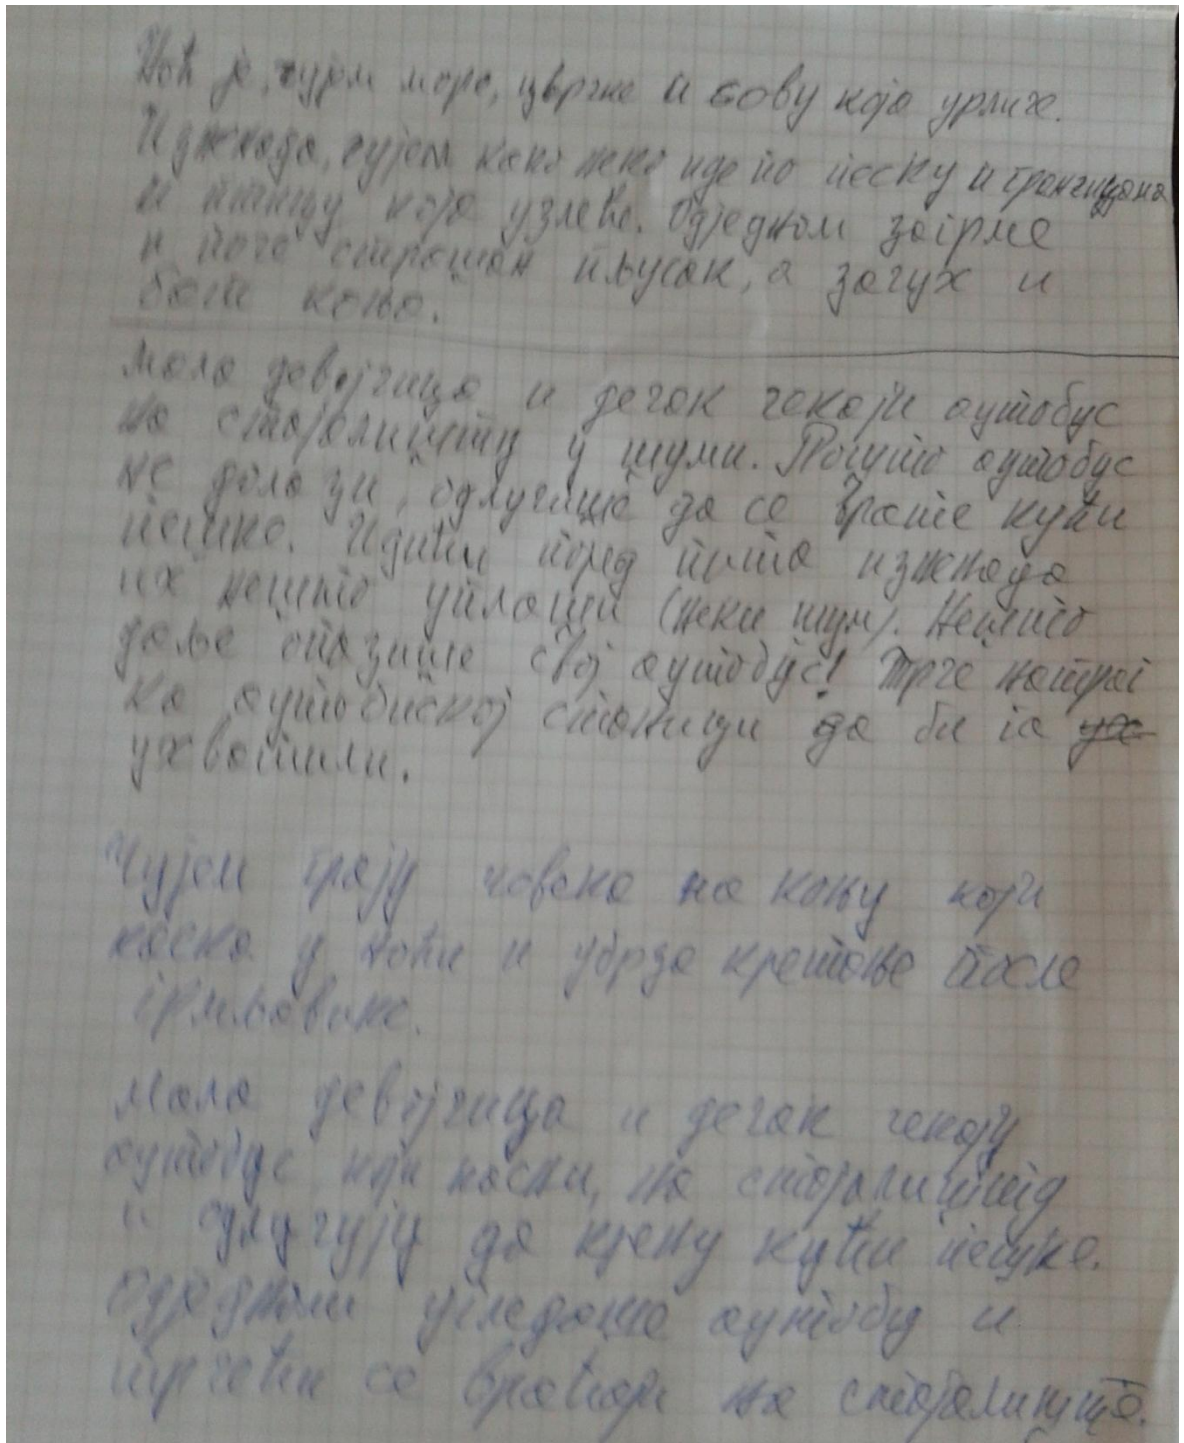 Ноћ је, чујем море, цврчке и сову која урличе.
Изненада, чујем како неко иде по песку и гранчицама
и птицу која узлеће. Одједном загрме
и поче страшан пљусак, а зачух и
бат коња.
Мала девојчица и дечак чекају аутобус
на стајалишту у шуми. Пошто аутобус
не долази, одлучише да се врате кући
пешке. Идући поред пута изненада
их нешто уплаши (неки шум). Нешто
даље опазише свој аутобус! Трче натраг
ка аутобиској станици да би га ух
ухватили.
Чујем човека на коњу који
каска у ноћи и убрза кретање после
грмљавине.
Мала девојчица и дечак чекају
аутобус, који касни, на стајалишту
и одлучују да крену кући пешке.
Одједном угледаше аутобус и
трчећи се враћају на стајалиште.